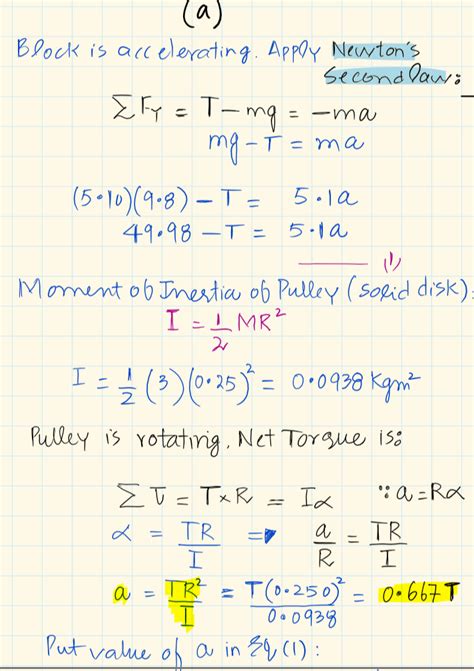 (a)
Block is accelerating. Apply Newton's
Second law:
ΣFy = T - mg = -ma
mg - T = ma
(5.10)(9.8) - T = 5.1a
49.98 - T = 5.1a
(1)
Moment of Inertia of Pulley (solid disk):
I = 1/2 MR²
I = 1/2 (3)(0.25)² = 0.0938 Kgm²
Pulley is rotating. Net Torque is:
Στ = T×R = Iα ∵ a=Rα
α = TR/I ⇒ a/R = TR/I
a = TR²/I = T(0.250)²/0.0938 = 0.667T
Put value of a in Eq (1):